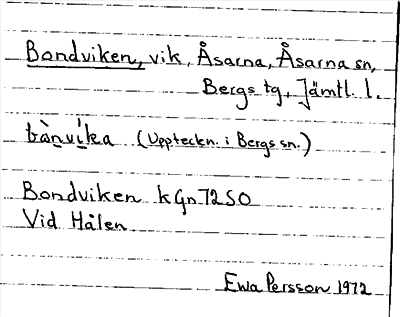 Bondviken, vik, Åsarna, Åsarna sn,
Bergs tg, Jämtl. l.
bànvìka (Uppteckn. i Bergs sn.)
Bondviken kGn72SO
Vid Hålen
Ewa Persson 1972